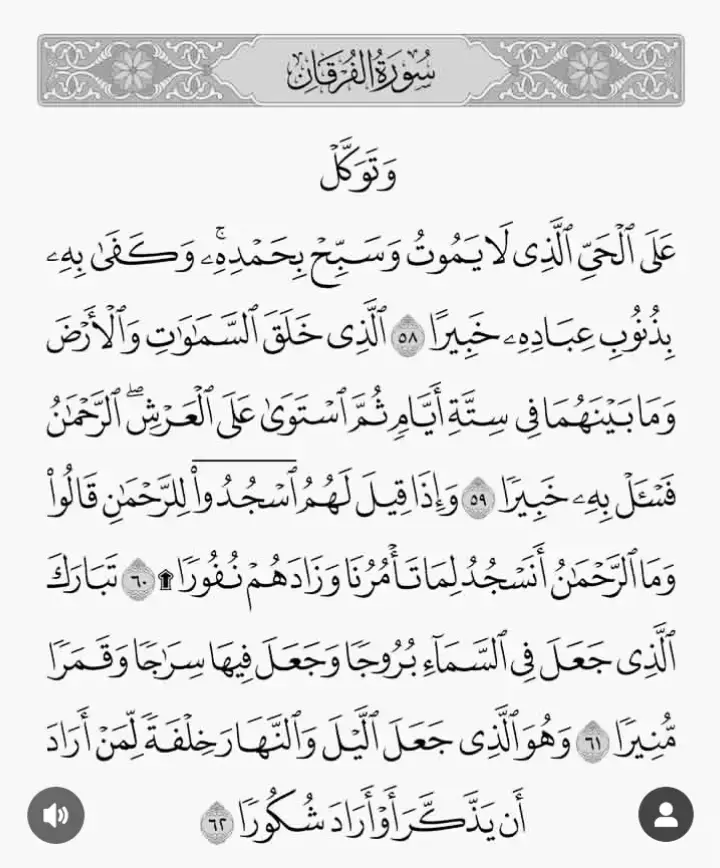 سُورَةُ الفُرْقَانِ
وَتَوَكَّلْ
عَلَى ٱلْحَيِّ ٱلَّذِى لَا يَمُوتُ وَسَبِّحْ بِحَمْدِهِۦۚ وَكَفَىٰ بِهِۦ
بِذُنُوبِ عِبَادِهِۦ خَبِيرًا ٥٨ ٱلَّذِى خَلَقَ ٱلسَّمَٰوَٰتِ وَٱلْأَرْضَ
وَمَا بَيْنَهُمَا فِى سِتَّةِ أَيَّامٍ ثُمَّ ٱسْتَوَىٰ عَلَى ٱلْعَرْشِۖ ٱلرَّحْمَٰنُ
فَسْـَٔلْ بِهِۦ خَبِيرًا ٥٩ وَإِذَا قِيلَ لَهُمُ ٱسْجُدُوا۟ لِلرَّحْمَٰنِ قَالُوا۟
وَمَا ٱلرَّحْمَٰنُ أَنَسْجُدُ لِمَا تَأْمُرُنَا وَزَادَهُمْ نُفُورًا ۩ ٦٠ تَبَارَكَ
ٱلَّذِى جَعَلَ فِى ٱلسَّمَآءِ بُرُوجًا وَجَعَلَ فِيهَا سِرَٰجًا وَقَمَرًا
مُّنِيرًا ٦١ وَهُوَ ٱلَّذِى جَعَلَ ٱلَّيْلَ وَٱلنَّهَارَ خِلْفَةً لِّمَنْ أَرَادَ
أَن يَذَّكَّرَ أَوْ أَرَادَ شُكُورًا ٦٢